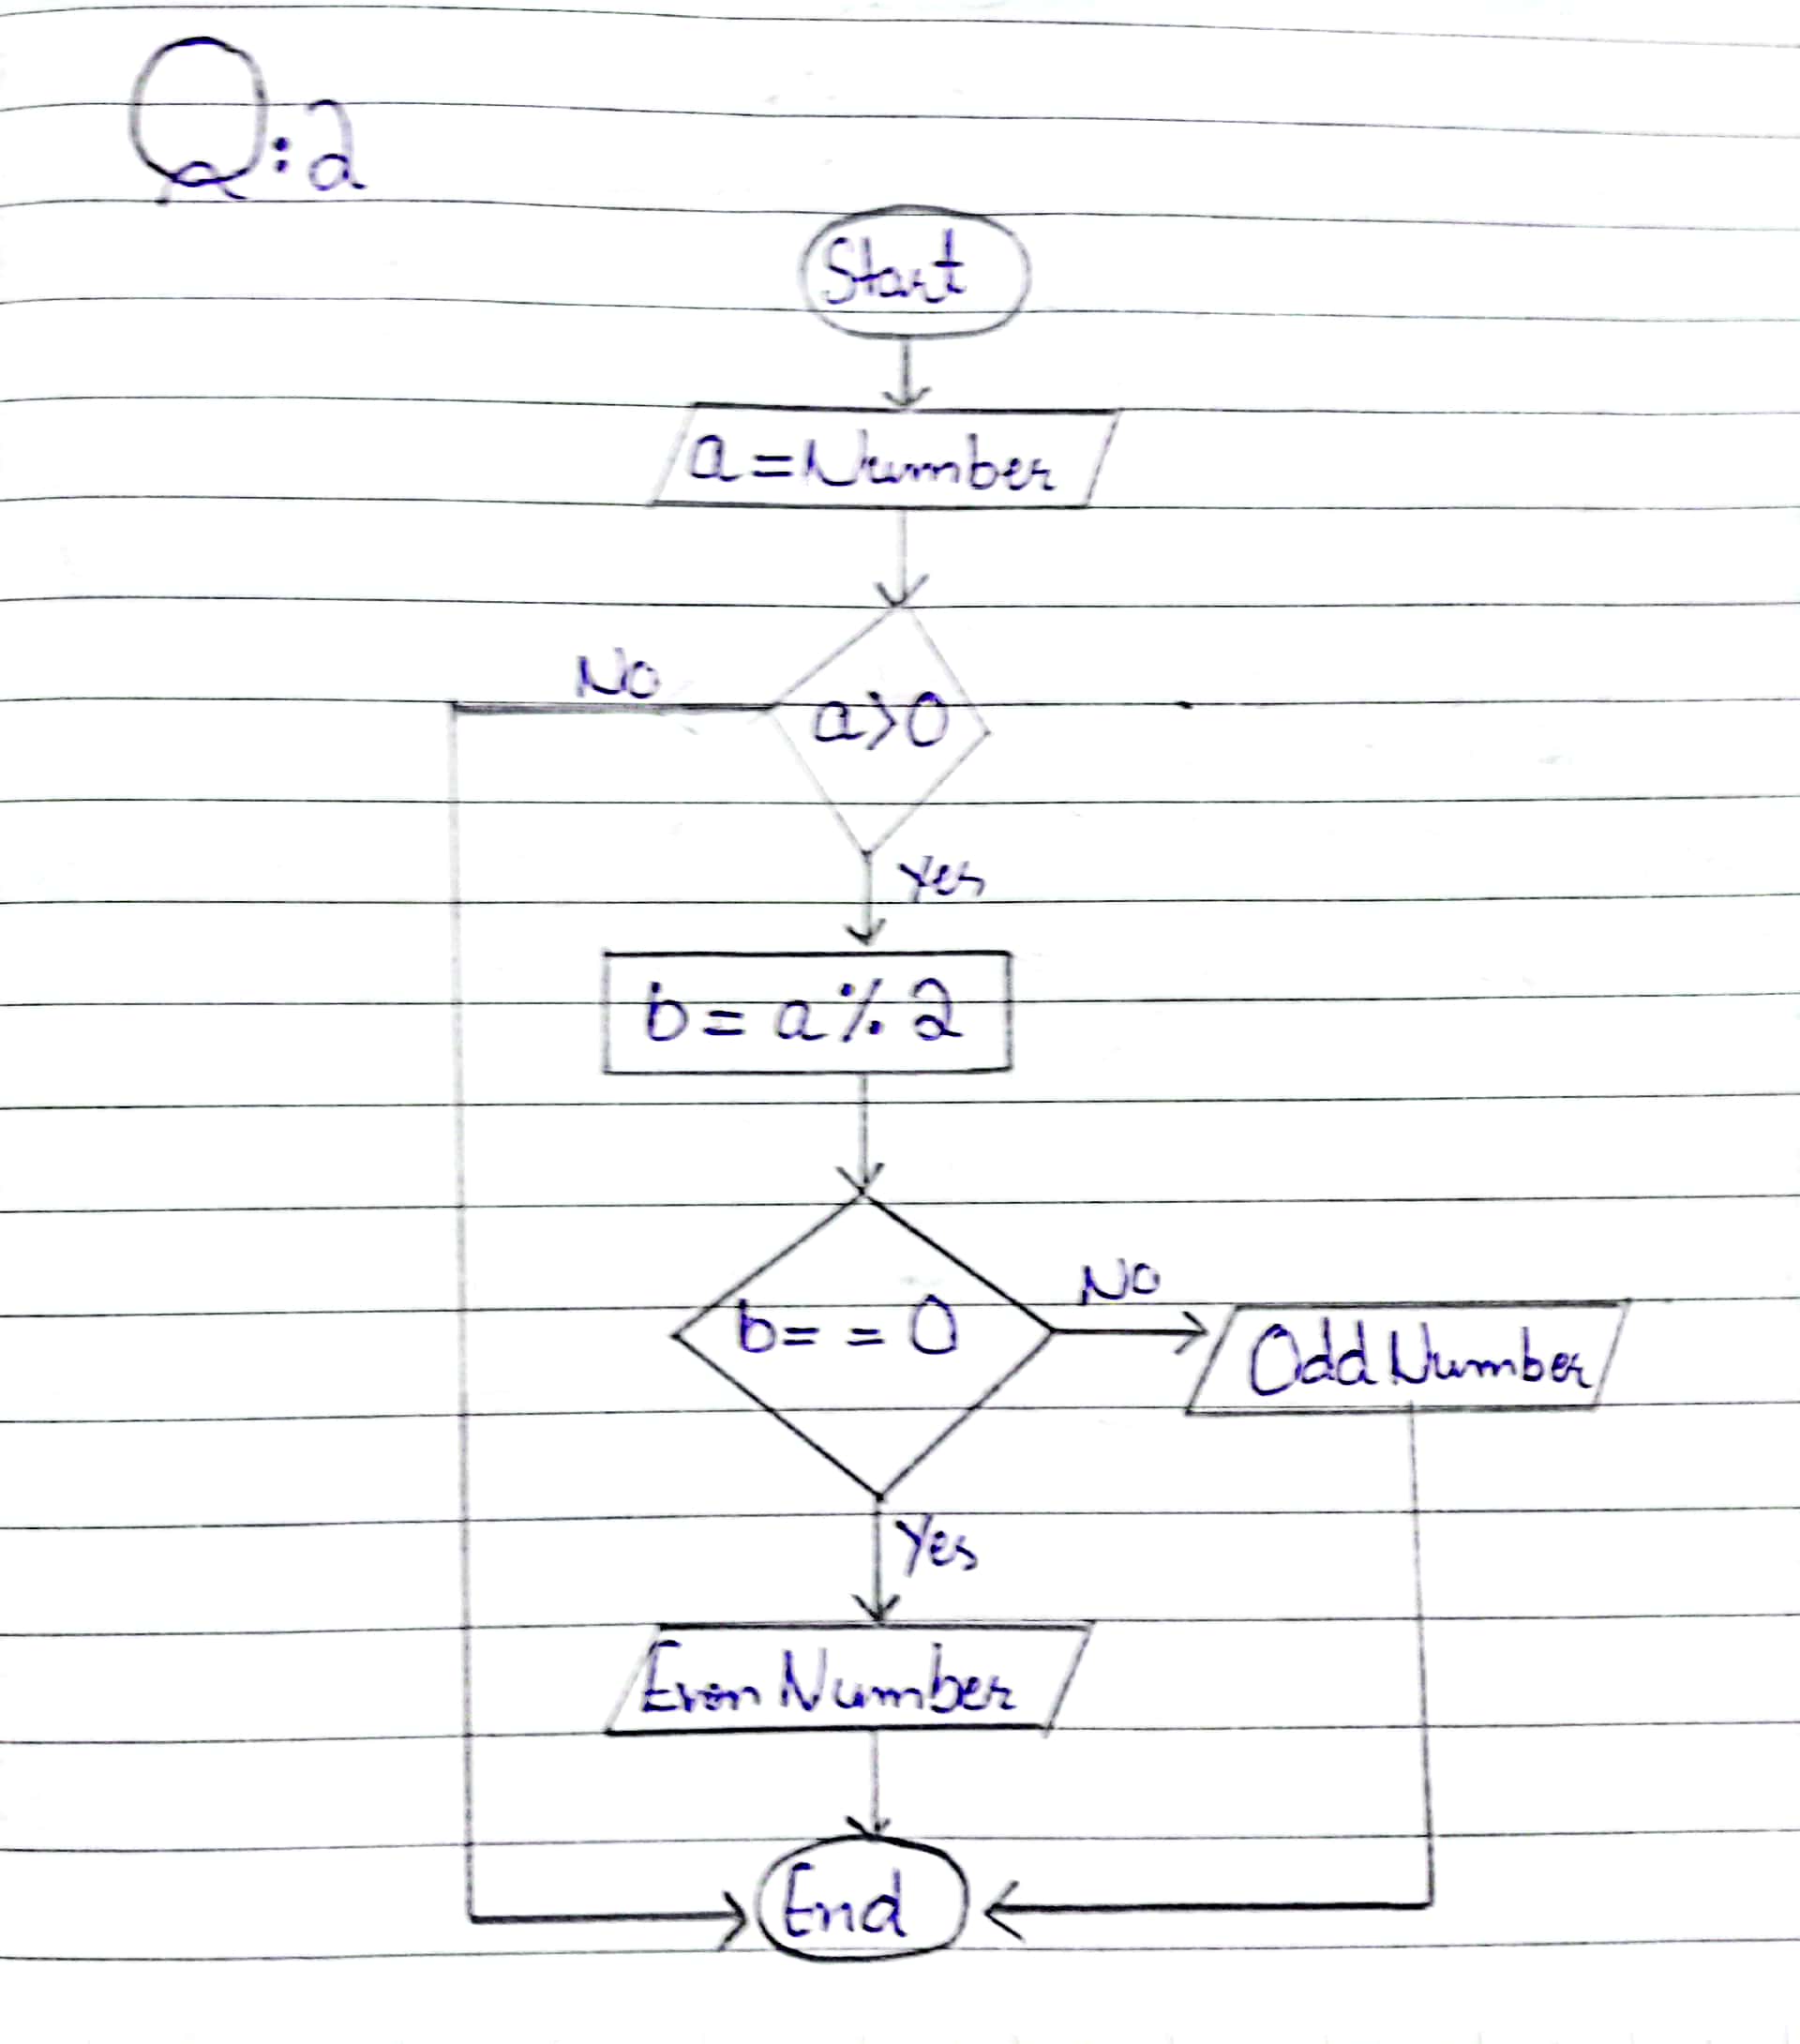 Q:2
Start
a=Number
No
a>0
Yes
b= a % 2
No
b= = 0
Odd Number
Yes
Even Number
End